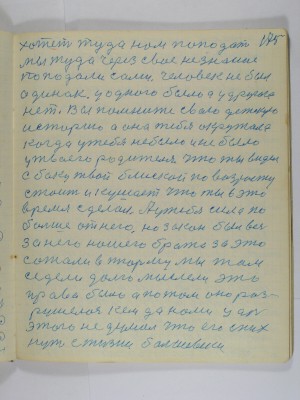 хотет туда ном поподат 175
мы туда через свое незнание
поподали сами. человек не был
адинак, у одного было а у друга
нет. Вы помните свою детскую
историю а она тебя окружала
когда у тебя небыло и не было
у твоего родителя. Что ты видел
с боку твой близкой по возрасту
стоит и кушает что ты в это
время сделал. А у тебя сила по
больше от него, но закон был вы
за него нашего брата за это
сожали в тюрму мы там
седели долго мыслели это
правда было а потом оно раз-
решелося кем да нами у до
этого не думал что его сних
нут с жизни балшевики